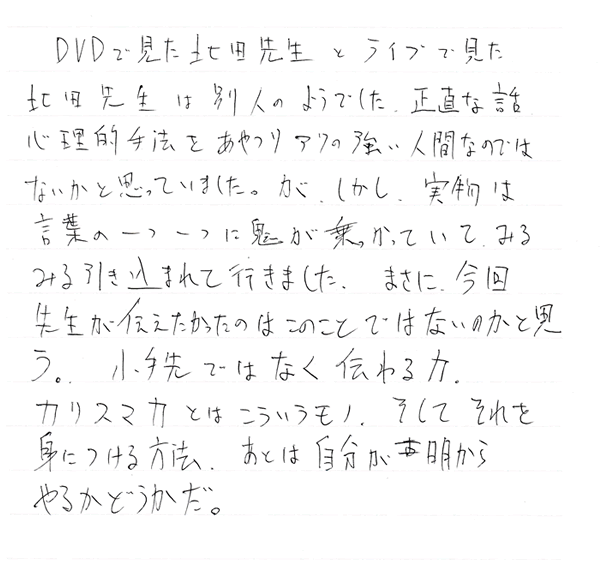 DVDで見た北田先生とライブで見た
北田先生は別人のようでした.正直な話
心理的手法をあやつりアクの強い人間なのでは
ないかと思っていました。が、しかし、実物は
言葉の一つ一つに鬼が乗っかっていて、みる
みる引き込まれて行きました、まさに、今回
先生が伝えたかったのはこのことではないのかと思
う。、小手先ではなく伝わる力、
カリスマ力とはこういうモノ、そしてそれを
身につける方法、あとは自分が 明から
やるかどうかだ。